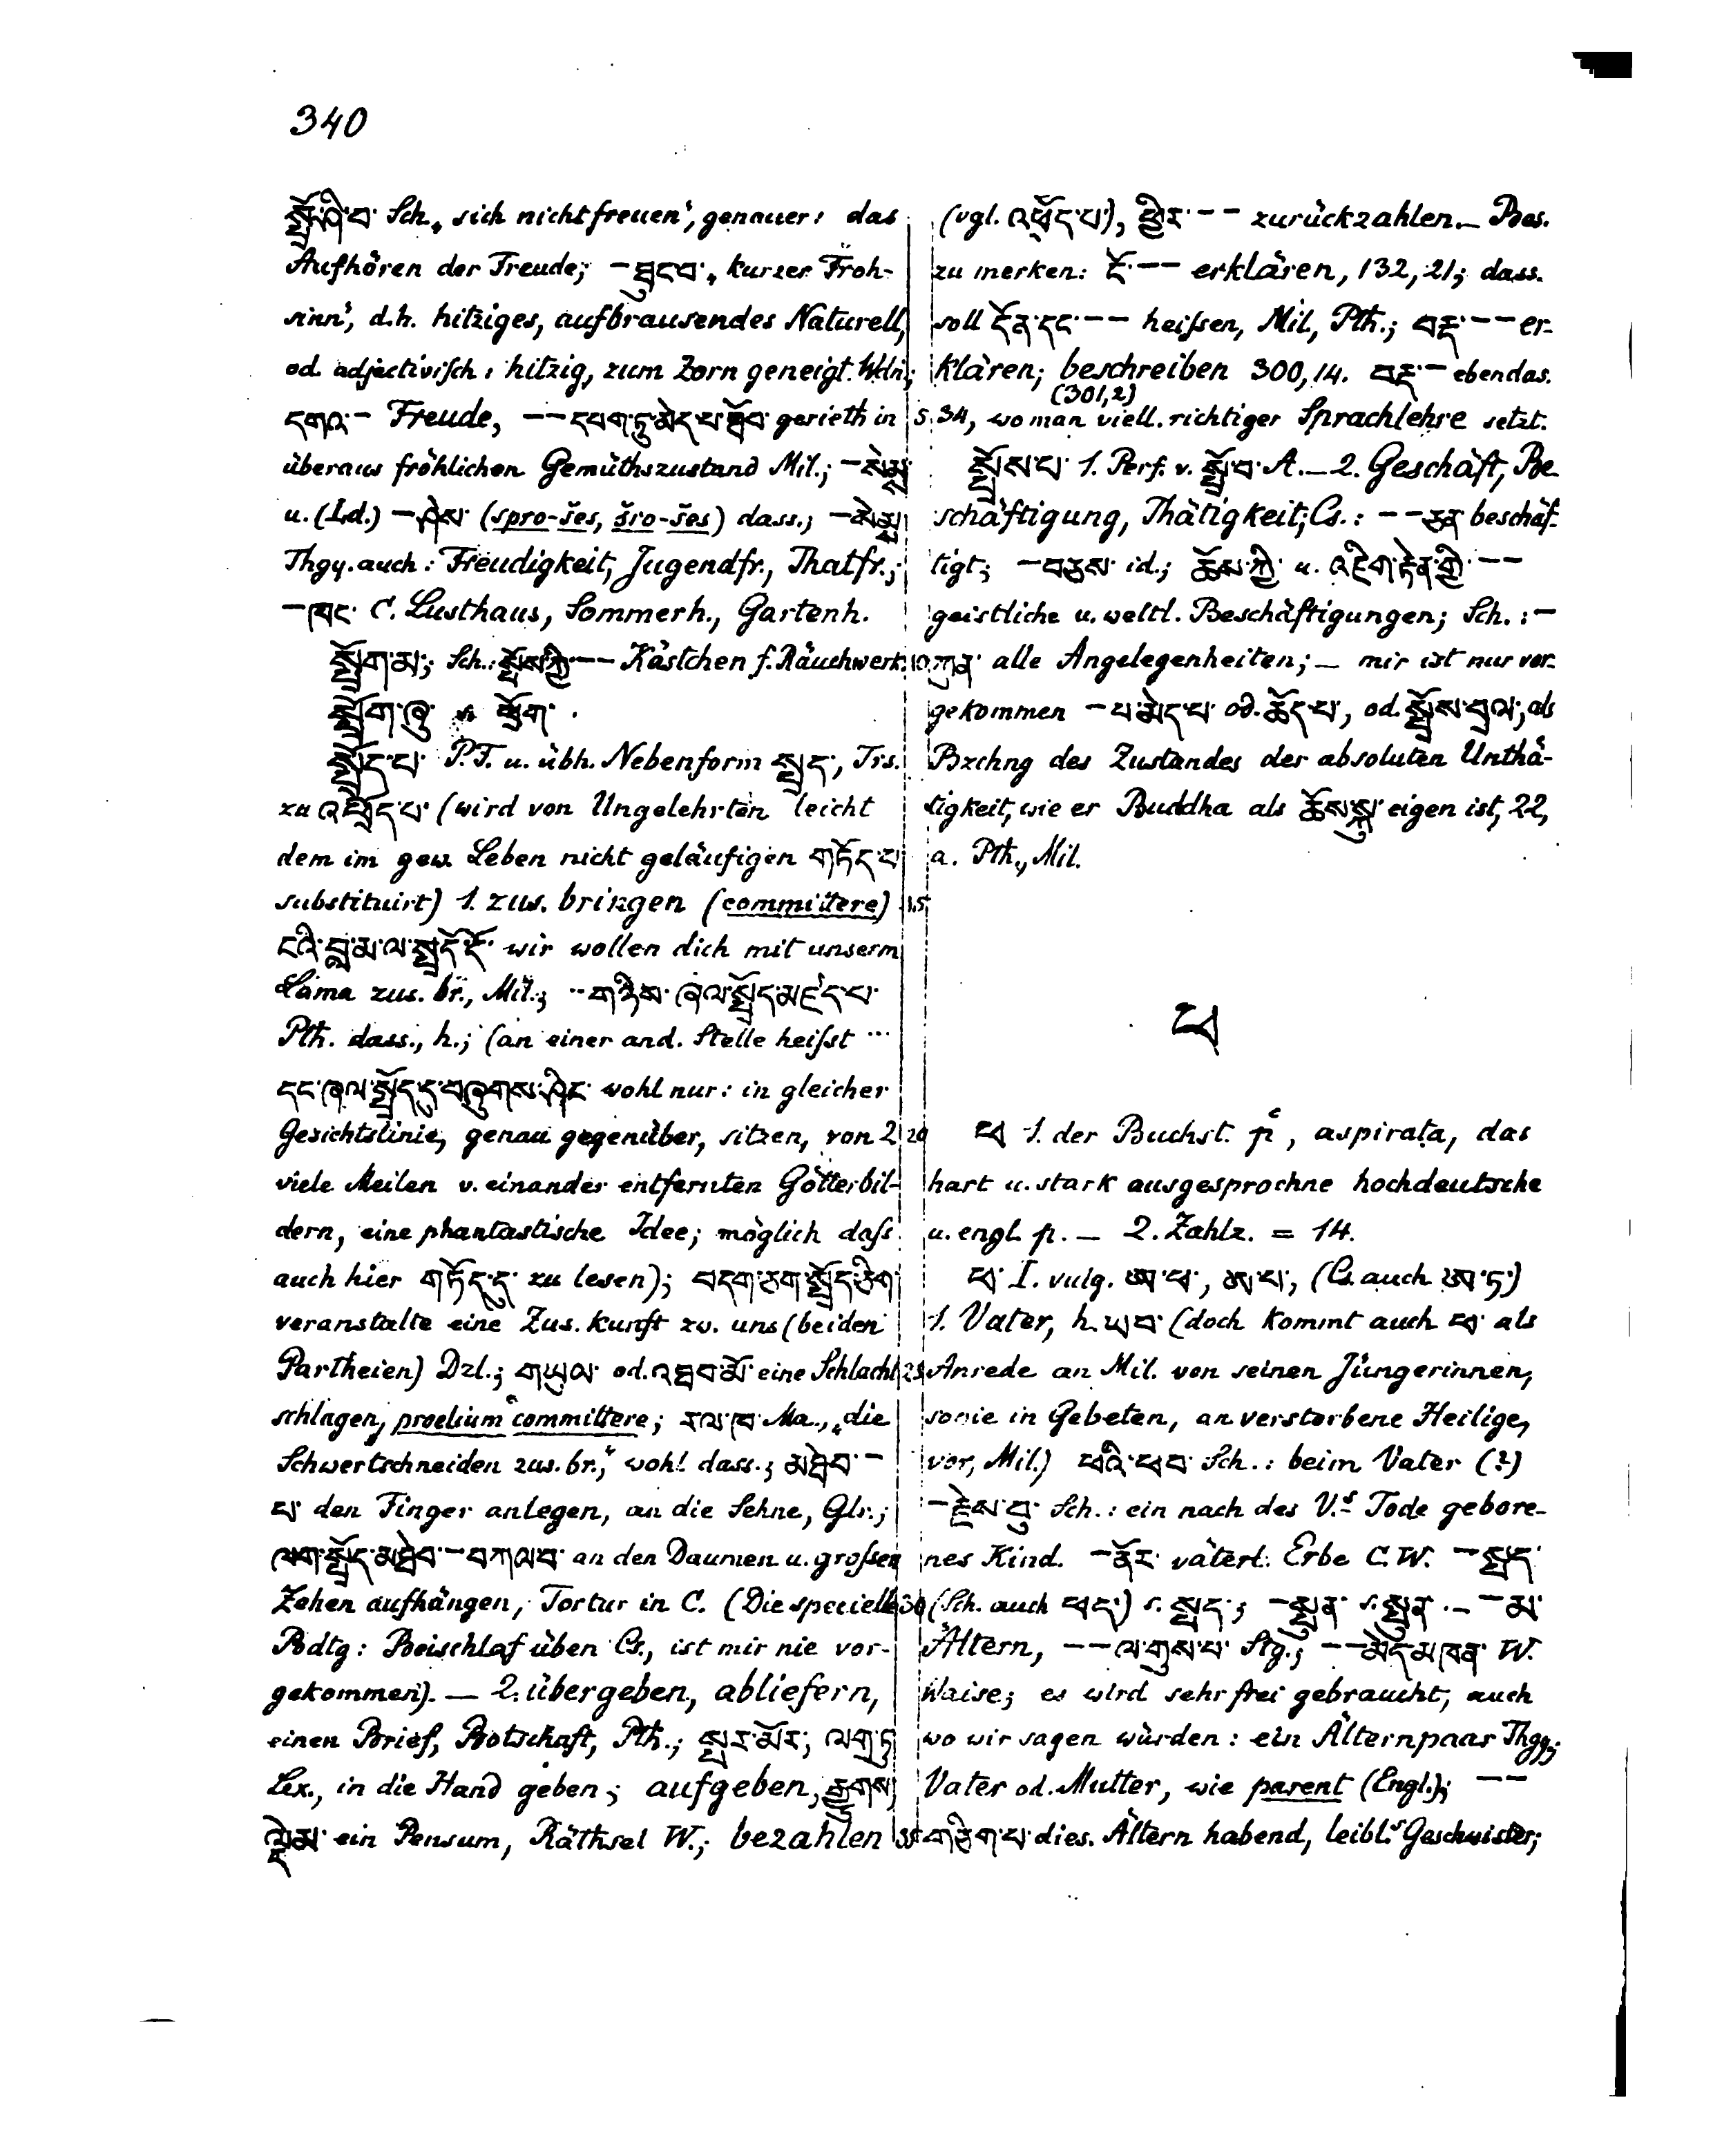 340
སྤྲོ་ཞི་བ་ Sch. „sich nicht freuen‘, genauer: das
Aufhören der Freude; – ཐུང་བ་ „kurzer Froh-
sinn‘, d.h. hitziges, aufbrausendes Naturell,
od. adjectivisch: hitzig, zum Zorn geneigt. Wdn;
དགའ་ – Freude, – – དཔག་ཏུ་མེད་པ་ཐོབ་ gerieth in
überaus fröhlichen Gemüthszustand Mil.; – སེམས་
u. (Ld.) – ཤེས་ (spro-šes, šro-šes) dass.; – སེམས་
Thgy. auch: Freudigkeit, Jugendfr., Thatfr.;
– ཁང་ C. Lusthaus, Sommerh., Gartenh.
སྤྲོག་མ་; Sch.: སྤོས་ཀྱི་ – – Kästchen f. Räuchwerk.
སྤྲོག་ཞུ་ s. ཕྲོག་.
སྤྲོད་པ་ P.F. u. übh. Nebenform སྤྲད་, Trs.
zu འཕྲོད་པ་ (wird von Ungelehrten leicht
dem im gew. Leben nicht geläufigen གཏོད་པ་
substituirt) 1. zus. bringen (committere)
ངའི་བླ་མ་ལ་སྤྲད་དོ་ wir wollen dich mit unserm
Lama zus. br., Mil.; ·· གཉིས་ཞལ་སྤྲོད་མཛད་པ་
Pth. dass., h.; (an einer and. Stelle heisst ···
དང་ཞལ་སྤྲོད་དུ་བཞུགས་ཤིང་ wohl nur: in gleicher
Gesichtslinie, genau gegenüber, sitzen, von 2
viele Meilen v. einander entfernten Götterbil-
dern, eine phantastische Idee; möglich dass
auch hier གཏོད་དུ་ zu lesen); བདག་ཅག་སྤྲོད་ཅིག
veranstalte eine Zus. kunft zw. uns (beiden
Partheien) Dzl.; གཡུལ་ od. འཐབ་མོ་ eine Schlacht
schlagen, proelium committere; རལ་ཁ་ Ma., „die
Schwertschneiden zus. br.,“ wohl dass.; མཐེབ་ –
པ་ den Finger anlegen, an die Sehne, Glr.;
ལག་སྤྲོད་མཐེབ་ – བཀལ་བ་ an den Daumen u. grossen
Zehen aufhängen, Tortur in C. (Die specielle
Bdtg: Beischlaf üben Cs., ist mir nie vor-
gekommen). — 2. übergeben, abliefern,
einen Brief, Botschaft, Pth.; སྤྲར་མོར་; ལག་ཏུ
Lex., in die Hand geben; aufgeben, རྒྱུགས
ལྡེམ་ ein Pensum, Räthsel W.; bezahlen
(vgl. འཕྲོད་པ་), ཕྱིར་ – – zurückzahlen. – Bes.
zu merken: ངོ་ – – erklären, 132, 21; dass.
soll དོན་དང་ – – heissen, Mil, Pth.; བརྡ་ – – er-
klären; beschreiben 300, 14. བརྡ་ – ebendas.
(301, 2)
5 34, wo man viell. richtiger Sprachlehre setzt.
སྤྲོས་པ་ 1. Perf. v. སྤྲོ་བ་ A. – 2. Geschäft, Be
schäftigung, Thätigkeit; Cs.: – – ཅན་ beschäf-
tigt; – བཅས་ id.; ཆོས་ཀྱི་ u. འཇིག་རྟེན་གྱི་ – –
geistliche u. weltl. Beschäftigungen; Sch.: –
10 ཀུན་ alle Angelegenheiten; — mir ist nur vor-
gekommen – པ་མེད་པ་ od. ཆོད་པ་, od. སྤྲོས་བྲལ་, als
Bzchng des Zustandes der absoluten Unthä-
tigkeit, wie er Buddha als ཆོས་སྐུ་ eigen ist, 22,
a. Pth., Mil.
15
ཕ
20 ཕ 1. der Buchst. p‘, aspirata, das
hart u. stark ausgesprochne hochdeutsche
u. engl. p. — 2. Zahlz. = 14.
ཕ་ I. vulg. ཨ་ཕ་, ཨ་པ་, (Cs. auch ཨ་ཏ་)
1. Vater, h. ཡབ་ (doch kommt auch ཕ་ als
25 Anrede an Mil. von seinen Jüngerinnen,
sowie in Gebeten, an verstorbene Heilige,
vor, Mil.) ཕའི་ཕབ་ Sch.: beim Vater (?)
– རྗེས་བུ་ Sch.: ein nach des V.s Tode gebore-
nes Kind. – ནོར་ väterl. Erbe C. W. – སྤད་
30 (Sch. auch ཕད་) s. སྤད་; – སྤུན་ s. སྤུན་. – – མ་
Ältern, – – ལ་གུས་པ་ Stg.; – – མེད་མཁན་ W.
Waise; es wird sehr frei gebraucht, auch
wo wir sagen würden: ein Älternpaar Thgy;
Vater od. Mutter, wie parent (Engl.); – –
35 གཅིག་པ་ dies. Ältern habend, leibl. Geschwister;